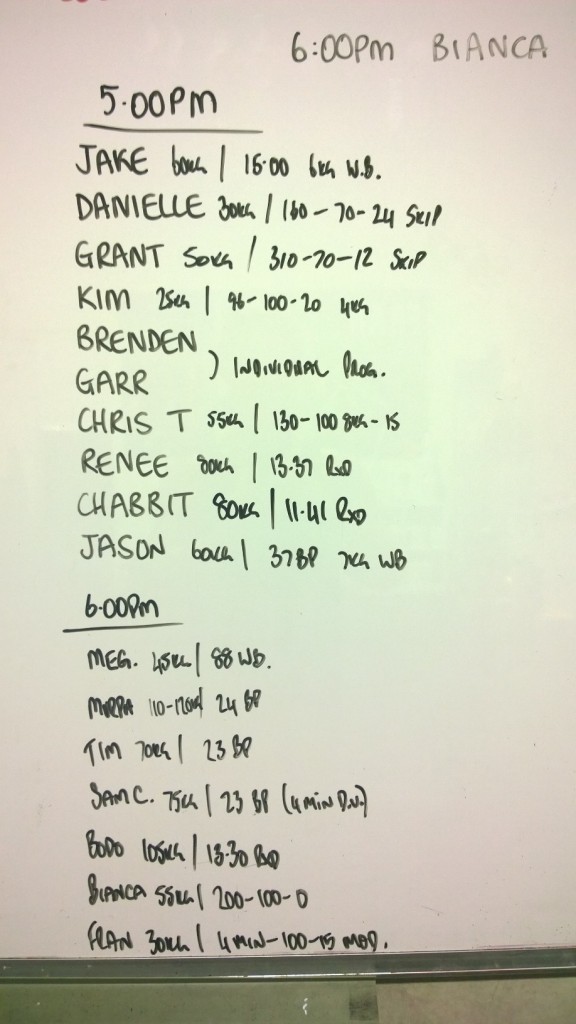 6:00PM BIANCA
5.00PM
JAKE 60KG / 15.00 6KG W.B.
DANIELLE 30KG / 160-70-24 SKIP
GRANT 50KG / 310-70-12 SKIP
KIM 25KG / 96-100-20 4KG
BRENDEN
) INDIVIDUAL PROG.
GARR
CHRIS T 55KG / 130-100 8KG-15
RENEE 80KG / 13.37 RXD
CHABBIT 80KG / 11.41 RXD
JASON 60KG / 37 BP 7KG WB
6.00PM
MEG. 45KG / 88 WB.
110-120KG / 24 BP
TIM 70KG / 23 BP
SAM C. 75KG / 23 BP (4 MIN D.U.)
BODO 105KG / 13.30 RXD
BIANCA 55KG / 200-100-0
FRAN 30KG / 4 MIN-100-15 MOD.